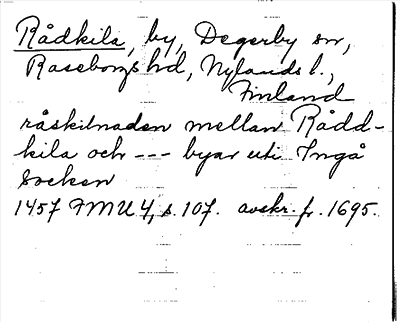 Rådkila, by, Degerby sn,
Raseborgs hd, Nylands l.,
Finland
råskilnaden mellan Rådd-
kila och --- byar uti Ingå
Socken
1457 FMU 4, s. 107. avskr. fr. 1695.